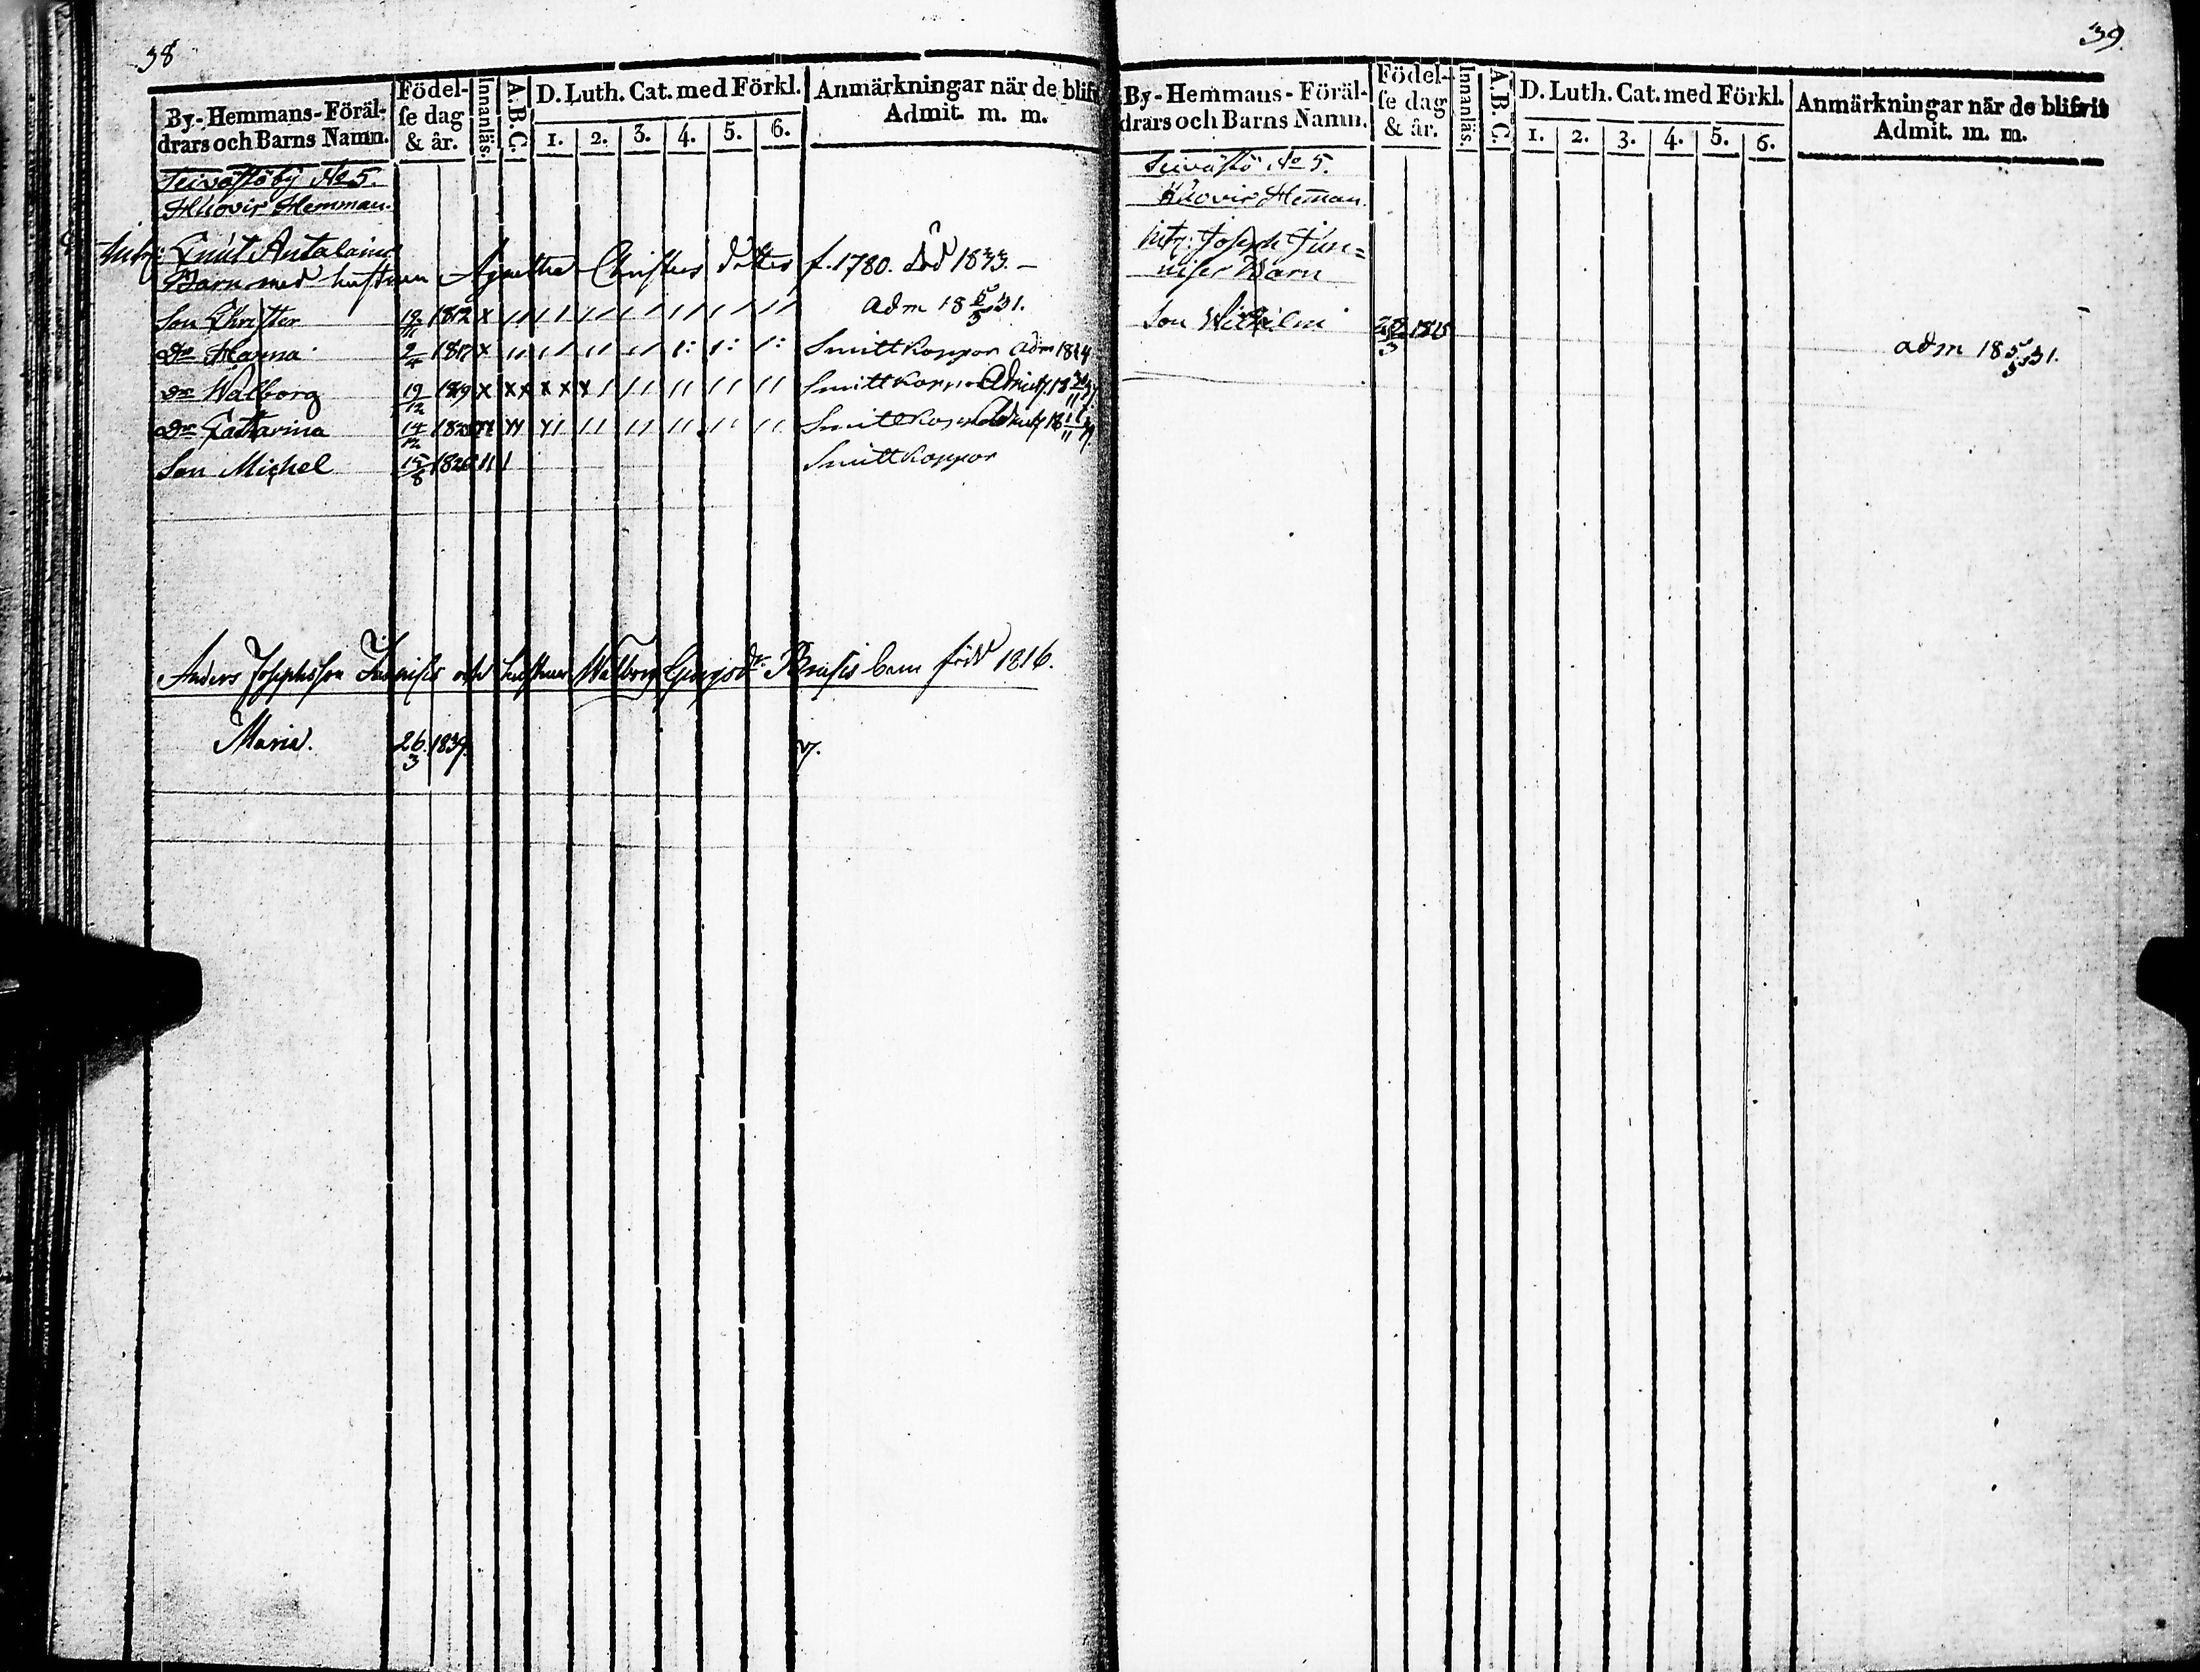 38
By-Hemmans-Föräl-
drars och Barns Namn.
Födel-
se dag
& år.
Innanläs.
A.B.C.
D. Luth. Cat. med Förkl.
1. 2. 3. 4. 5. 6.
Anmärkningar när de blif
Admit. m. m.
Teivästö by No 5.
Huovis Hemman.
Knut Antalaine
Barn med hustrun Agnetha Christers dotter f. 1780. död 1833. –
Son Christer 12/11 1812 x adm 18 5/5 31.
Dr Hanna 2/4 1817 x Smittkoppor adm 1834
Dr Walborg 19/12 1819 x x x x x x Smittkoppor Admit. 18
Dr Catharina 14/12 Smittkoppor Admit. 18
Son Michel 15/8 1826 Smittkoppor
Anders Josephsson och hustrun Walborg barn född 1816.
Maria. 26/3 1839. v.
39.
By-Hemmans-Föräl-
drars och Barns Namn.
Födel-
se dag
& år.
Innanläs.
A.B.C.
D. Luth. Cat. med Förkl.
1. 2. 3. 4. 5. 6.
Anmärkningar när de blifvit
Admit. m. m.
Teivästö No 5.
Huovis Heman.
Joseph Jun=
nises Barn
Son Wilhelm adm 18 5/5 31.